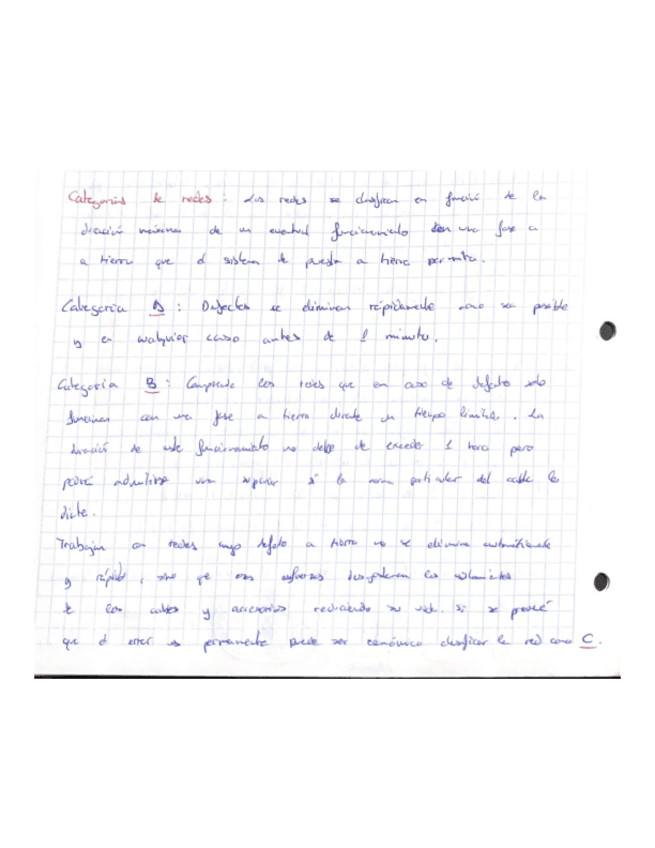 Categorías de redes : Las redes se clasifican en función de la
duración máxima de un eventual funcionamiento con una fase a
a tierra que el sistema de puesta a tierra permita.
Categoría A : Defectos se eliminan rápidamente como sea posible
y en cualquier caso antes de 1 minuto.
Categoría B : Comprende las redes que en caso de defecto solo
funcionan con una fase a tierra durante un tiempo limitado. La
duración de este funcionamiento no debe de exceder 1 hora pero
podrá admitirse una superior si la norma particular del cable lo
dicte.
Trabajan con redes cuyo defecto a tierra no se elimina automáticamente
y rápido, sino que esos esfuerzos los aislamientos
de los cables y accesorios reduciendo su vida. Si se prevé
que el error es permanente puede ser económico clasificar la red como C.